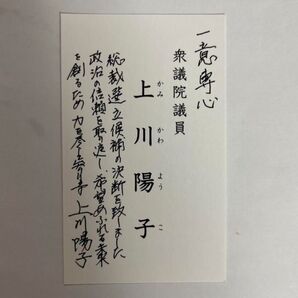 一意専心
衆議院議員
上川陽子
かみかわようこ
総裁選立候補の決断を致しました
政治の信頼を取り返し、希望あふれる未来
を創るため力を尽して参ります 上川陽子